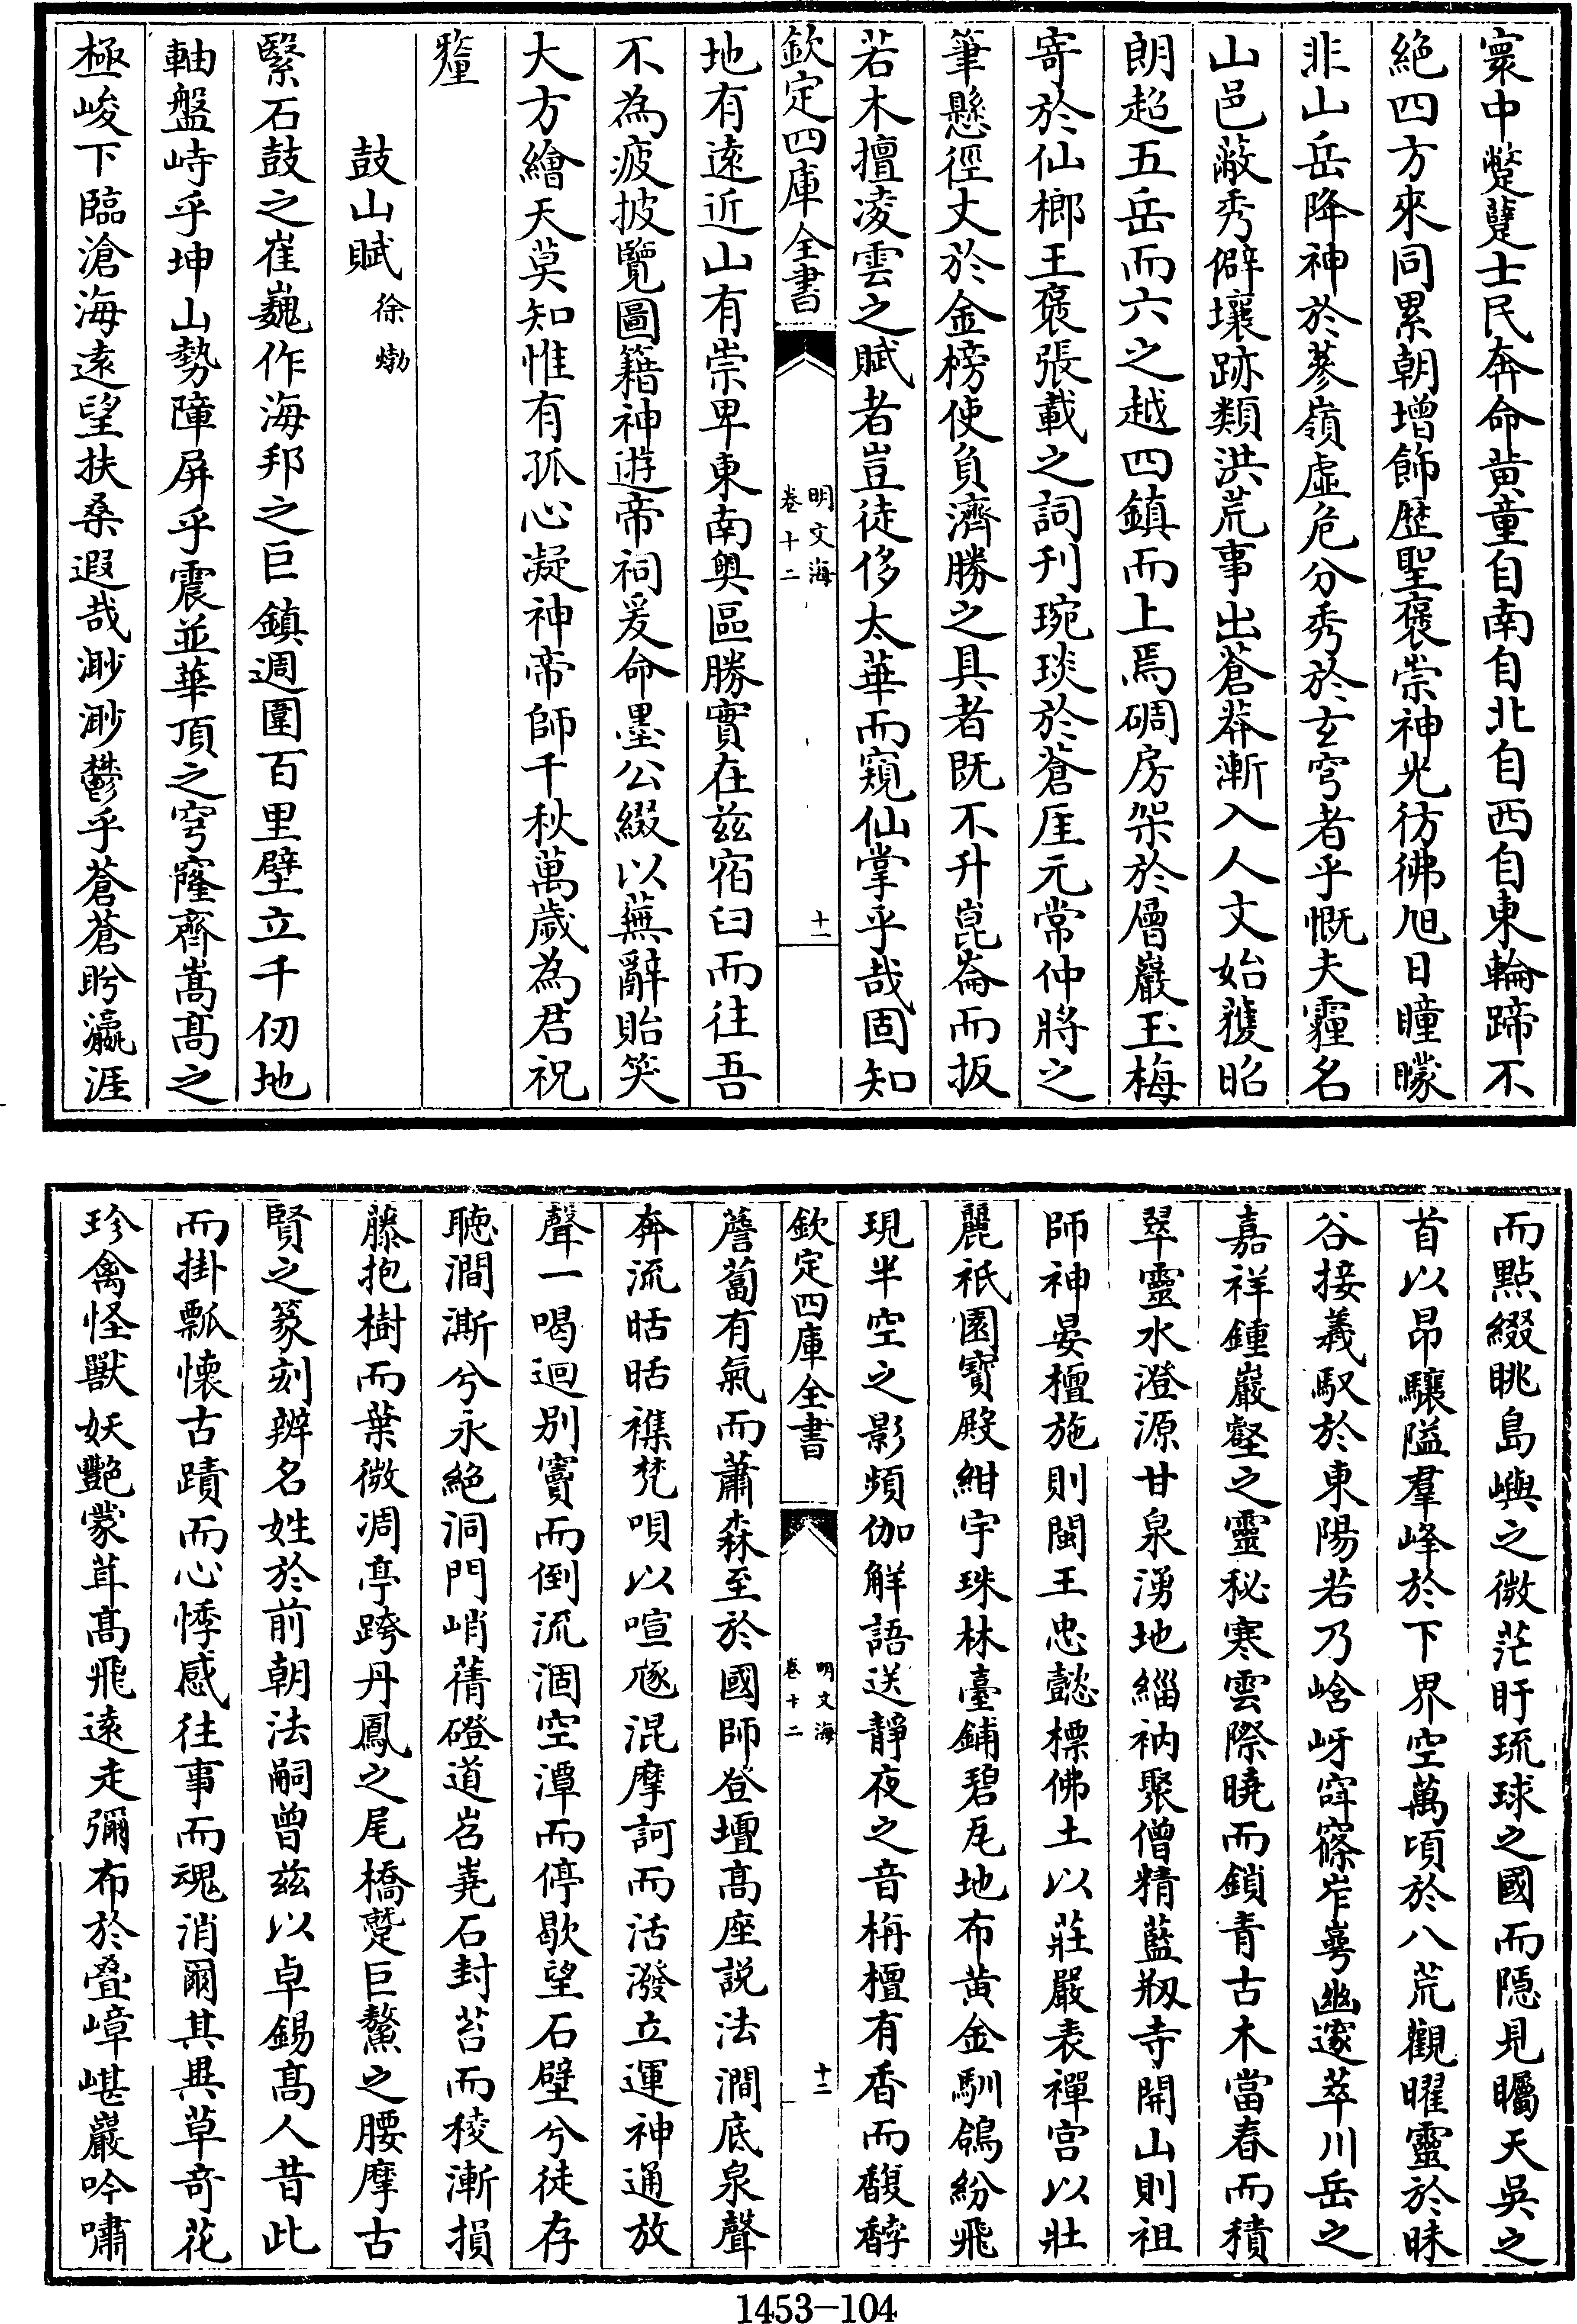 寰中蹩躠士民奔命黄童自南自北自西自東輪蹄不
絶四方來同累朝增飾歴聖褒崇神光彷彿旭日曈曚
非山岳降神於蔘嶺虛危分秀於玄穹者乎慨夫霾名
山邑蔽秀僻壤跡類洪荒事出蒼莽漸入人文始䕶昭
朗超五岳而六之越四鎮而上焉碉房架於層巖玉梅
寄於仙榔王褒張載之詞刋琬琰於蒼厓元常仲將之
筆懸徑丈於金榜使負濟勝之具者既不升崑崙而扳
若木擅凌雲之賦者豈徒侈太華而窺仙掌乎哉固知
欽定四庫全書
明文海
卷十二
十一
地有遠近山有崇卑東南奥區勝實在兹宿臼而往吾
不為疲披覽圖籍神遊帝祠爰命墨公綴以蕪辭貽笑
大方繪天莫知惟有孤心凝神帝師千秋萬歲為君祝
釐
鼓山賦 徐㶿
緊石鼓之崔巍作海邦之巨鎮週圍百里壁立千仞地
軸盤峙乎坤山勢障屏乎震並華頂之穹窿齊嵩髙之
極峻下臨滄海遠望扶桑遐哉渺渺鬱乎蒼蒼盻瀛涯
而點綴眺島嶼之微茫盱琉球之國而隱見矚天吳之
首以昂驤隘羣峰於下界空萬頃於八荒觀曜靈於昧
谷接羲馭於東陽若乃崯岈窱篠岞崿幽邃萃川岳之
嘉祥鍾巖壑之靈秘寒雲際曉而鎖青古木當春而積
翠靈水澄源甘泉湧地緇衲聚僧精藍剏寺開山則祖
師神晏檀施則閩王忠懿標佛土以莊嚴表禪宫以壯
麗祇園寶殿紺宇珠林臺鋪碧瓦地布黄金馴鴿紛飛
現半空之影頻伽解語送靜夜之音栴檀有香而馥馞
欽定四庫全書
明文海
卷十二
十二
薝蔔有氣而蕭森至於國師登壇髙座説法澗底泉聲
奔流聒聒襍梵唄以喧豗混摩訶而活潑立運神通放
聲一喝迴别竇而倒流涸空潭而停歇望石壁兮徒存
聽澗澌兮永絶洞門峭蒨磴道岧嶤石封苔而稜漸損
藤抱樹而葉微凋亭跨丹鳳之尾橋蹙巨鰲之腰摩古
賢之篆刻辨名姓於前朝法嗣曾兹以卓錫髙人昔此
而掛瓢懐古蹟而心悸感往事而魂消爾其異草奇花
珍禽怪獸妖艶蒙茸髙飛遠走彌布於疊嶂嵁巖吟嘯
1453—104